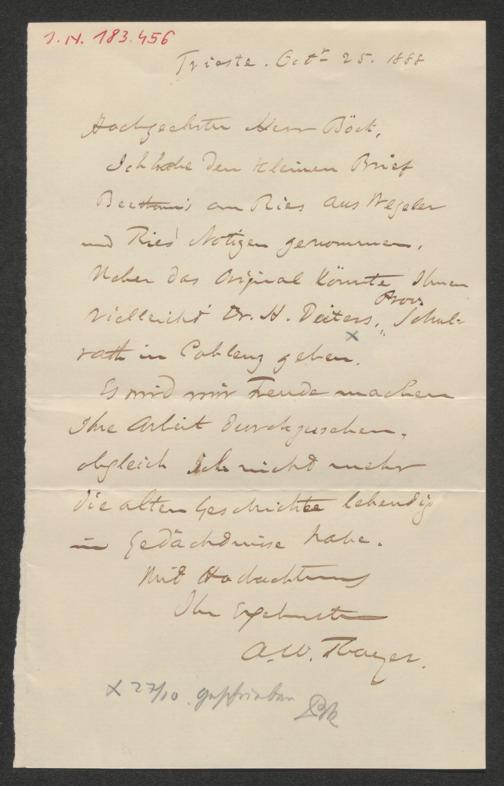 I. N. 183.456
Trieste. Octr 25. 1888
Hochgeehrter Herr Böck,
Ich habe den kleinen Brief
Beethovens an Ries aus Wegeler
und Ries' Notizen genommen.
Ueber das Original könnte Ihnen
vielleicht Dr. H. Deiters, Prov. Schul-
rath in Coblenz geben.
Es wird mir Freude machen
Ihre Arbeit durchzusehen,
obgleich Ich nicht mehr
die alten Geschichte lebendig
im Gedächtnisse habe.
Mit Hochachtung
Ihr Ergebenster
A. W. Thayer.
x 27/10 geschrieben